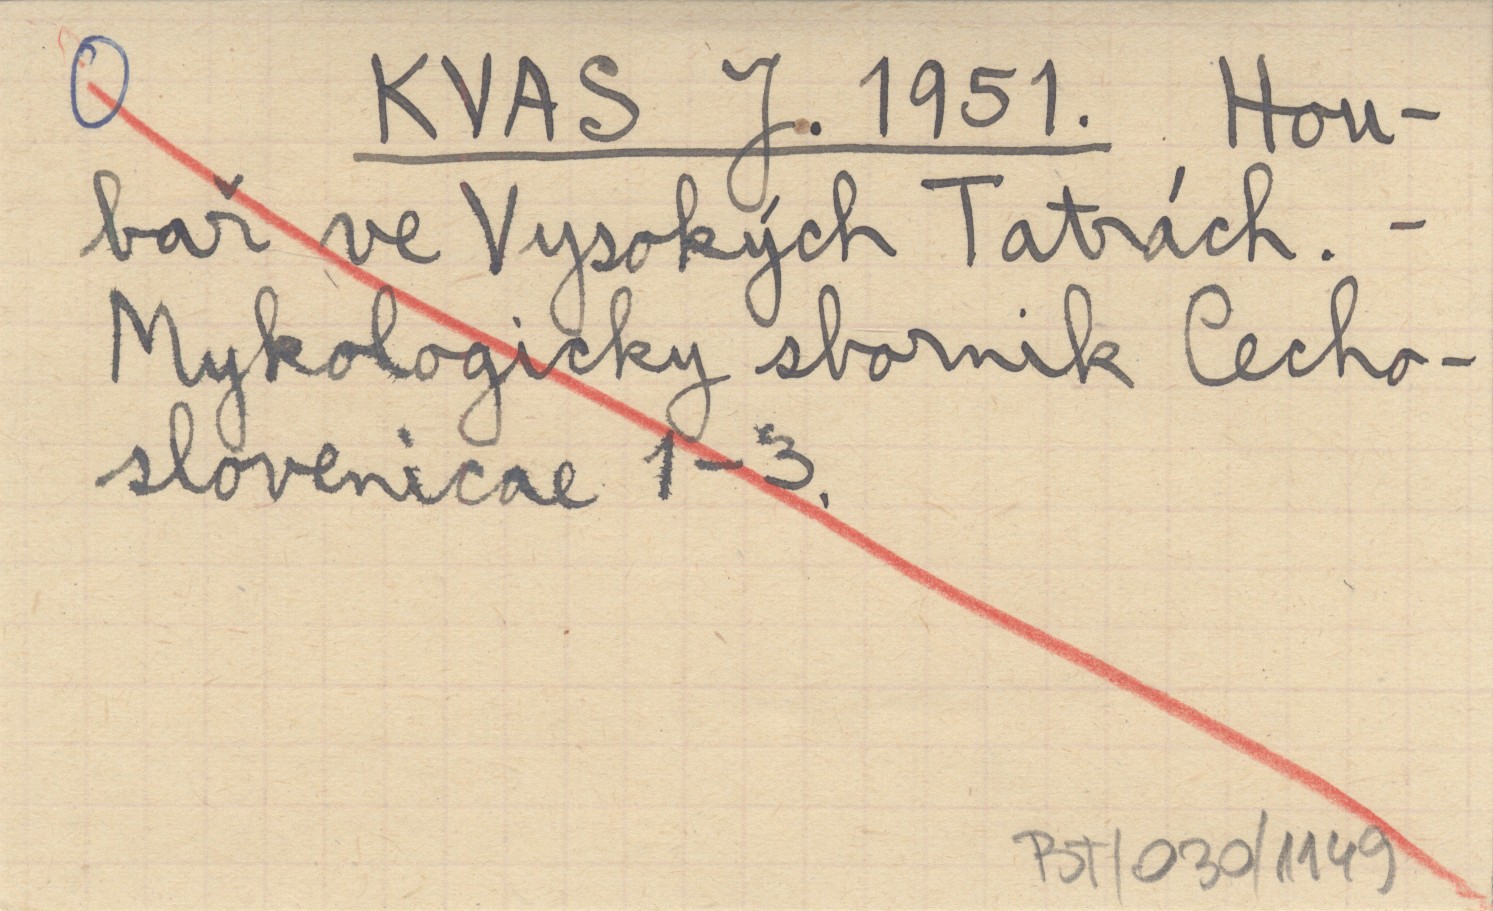 O
KVAS J. 1951. Hou-
bař ve Vysokých Tatrách. -
Mykologicky sbornik Cecho-
slovenicae 1-3.
BST/030/1149